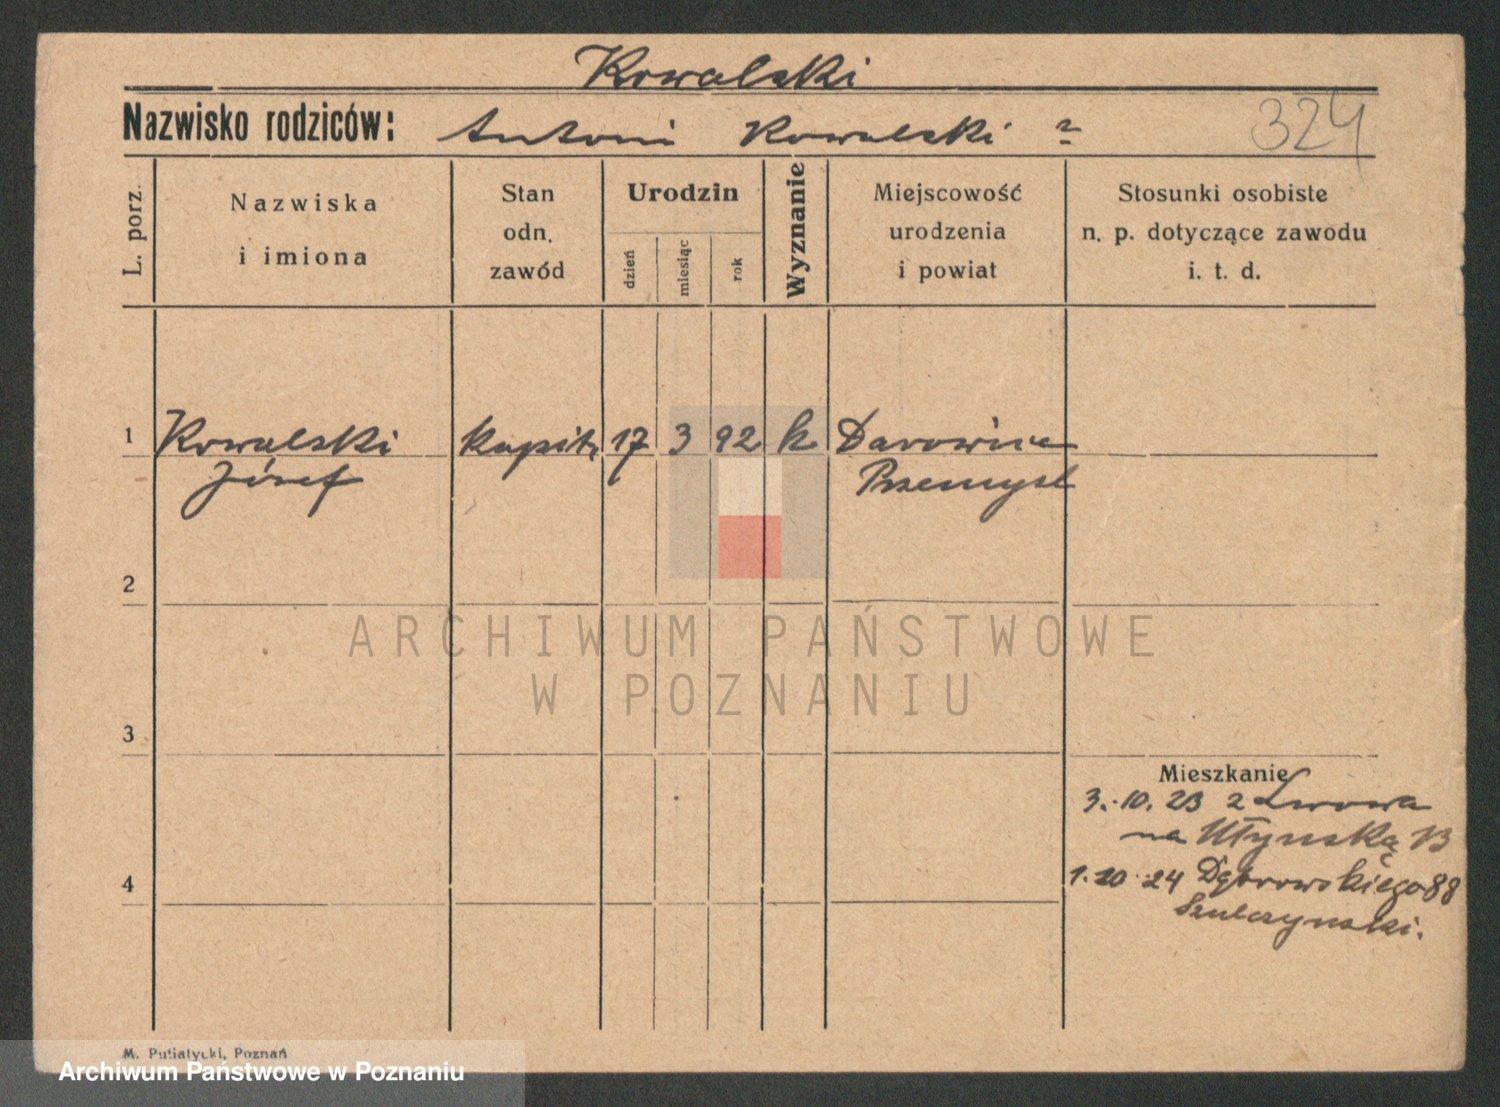 Kowalski
Nazwisko rodziców: Antoni Kowalski ?
324
L. porz.
Nazwiska
i imiona
Stan
odn.
zawód
Urodzin
dzień
miesiąc
rok
Wyznanie
Miejscowość
urodzenia
i powiat
Stosunki osobiste
n. p. dotyczące zawodu
i. t. d.
1 Kowalski kapit. 17 3 92 k Darowice
Józef Przemysl
2
ARCHIWUM PAŃSTWOWE
W POZNANIU
3
Mieszkanie
3.10.23 z Lwowa
na 13
4
1.10.24 Dąbrowskiego 88
Szulczynski.
M. Putiatycki, Poznań
Archiwum Państwowe w Poznaniu